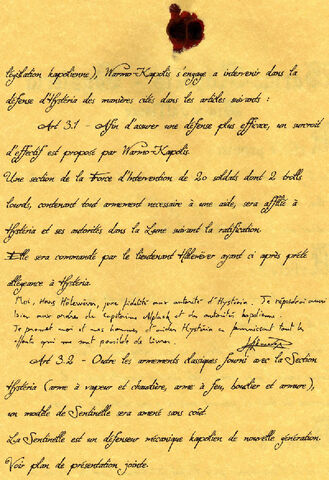 législation kapolienne), Warmo-Kapolis s'engage a intervenir dans la
défense d'Hystéria des manières cités dans les articles suivants :
Art 3.1 - Afin d'assurer une défense plus efficace, un surcroit
d'effectif est proposé par Warmo-Kapolis.
Une section de la Force d'Intervention de 20 soldats dont 2 trolls
lourds, contenant tout armement necessaire à une aide, sera affilié à
Hystéria et ses autorités dans la Lune suivant la ratification.
Elle sera commandé par le lieutenant ayant ci après prêté
allégeance à Hystéria.
Moi, Hans, jure fidélité aux autorités d'Hystéria. Je répondrai aussi
bien aux ordres du capitaine et des autorités kapoliennes.
Je promet moi et mes hommes d'aider Hystéria en fournissant tout les
efforts qui me sont possible de livrer.
Art 3.2 - Outre les armements classiques fourni avec la Section
Hystéria (arme à vapeur et chaudière, arme à feu, bouclier et armure),
un modèle de Sentinelle sera amené sans coût.
La Sentinelle est un défenseur mécanique kapolien de nouvelle génération.
Voir plan de présentation jointe.